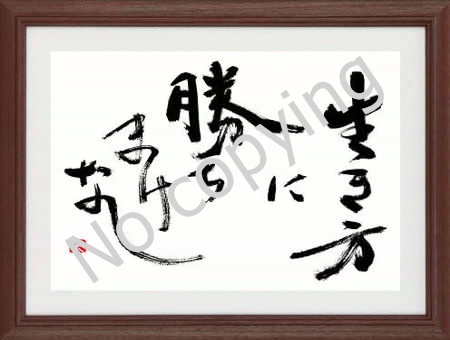 生き方
に
勝ち
まけ
なし
No copying